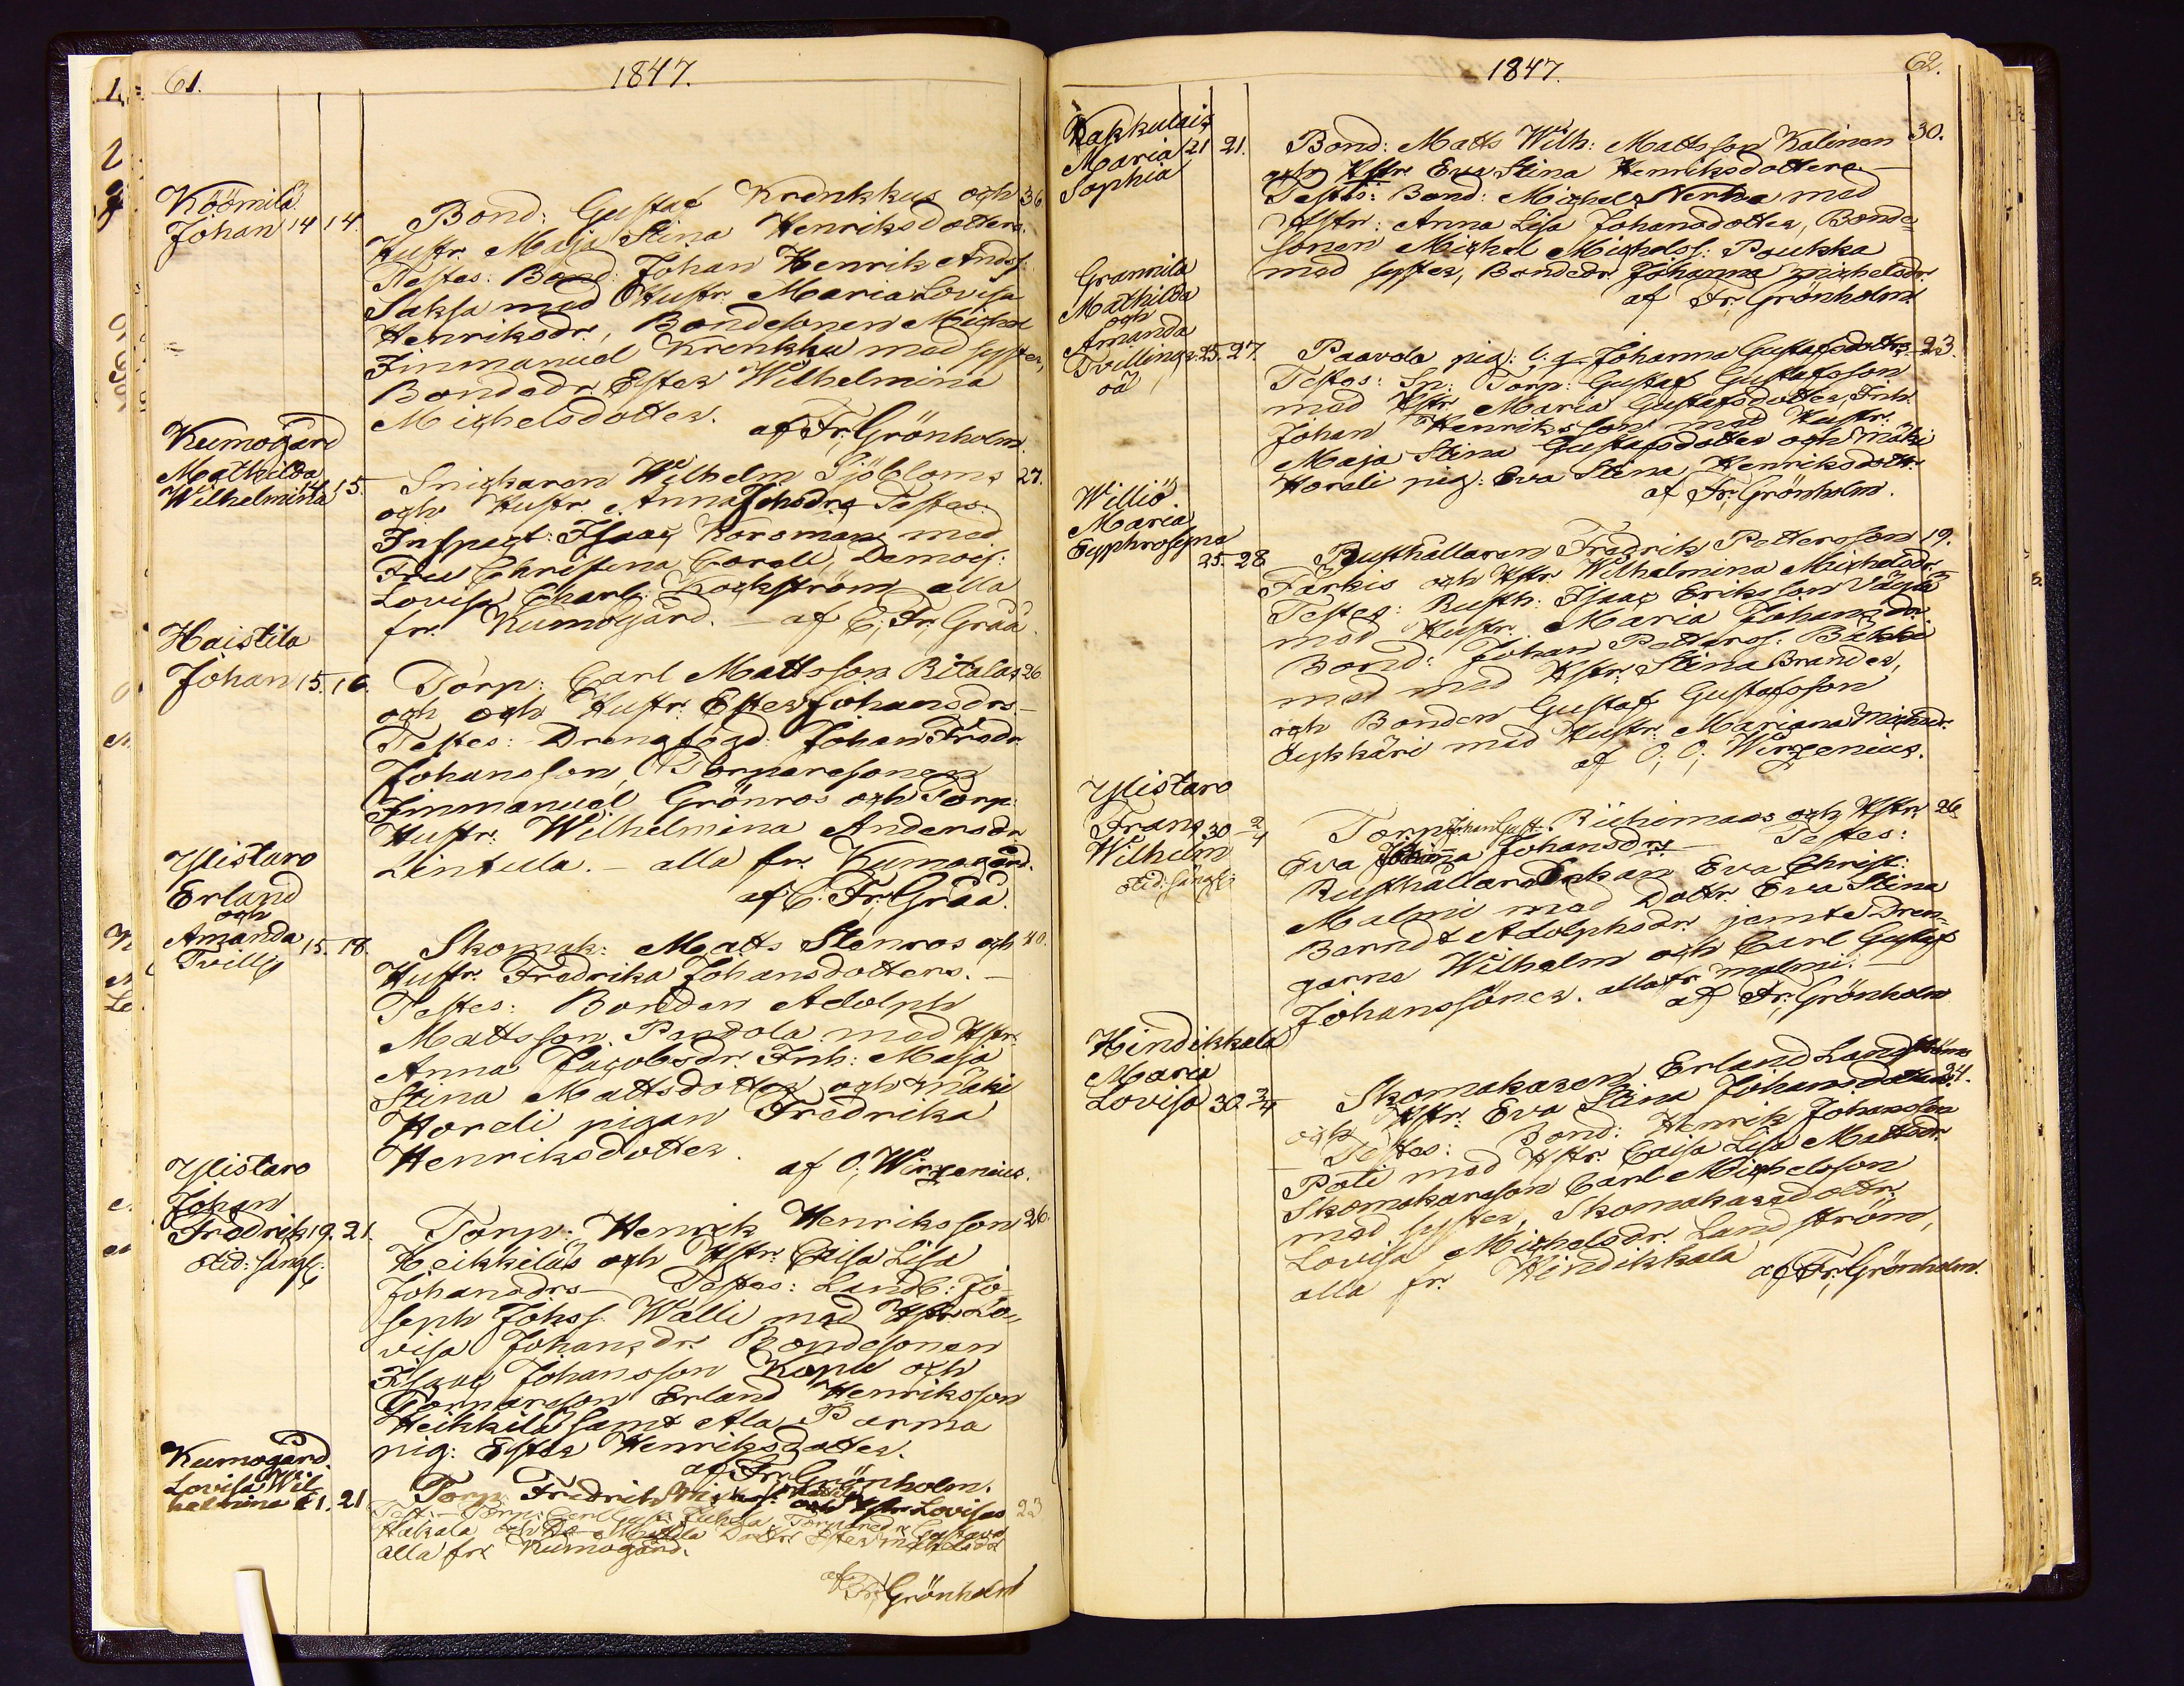 61.
1847.
Köömilä
Johan 14 14.
Bond: Gustaf Krenkkus och 36
Hustr. Maja Stina Henriksdotters.
Testes: Bond: Johan Henrik Andss:
Saksa med Hustr. Maria Lovisa
Henriksdr., Bondesonen Michel
Immanuel Krenkku med syster,
Bondedr Ester Wilhelmina
Michelsdotter.
af Fr. Grönholm.
Kumogård
Mathilda
Wilhelmina 14 15.
Snickaren Wilhelm Sjöbloms 27.
och Hustr. Anna Johsdrs Testes:
Inspect: Isaac Korsman med
Fru Christina Corell, Demois:
Lovisa Charl: Kockström alla
fr. Kumogård. – af C. Fr. Grää.
Haistila
Johan 15. 16.
Torp: Carl Mattsson Ritalas 26
och och Hustr: Ester Johansdrs –
Testes: Drengfogd: Johan Fredr
Johansson, Torparesonen
Immanuel Grönros och Torp:
Hustr. Wilhelmina Andersdr
Lintula. – alla fr. Kumogård.
af C. Fr. Grää.
Ylistaro
Erland
och
Amanda 15. 18.
Twillg
Skomak: Matts Stenros och 40.
Hustr. Fredrika Johansdotters. –
Testes: Bonden Adolph
Mattsson Paavola med Hstr.
Anna Jacobsdr. Inh: Maja
Stina Mattsdotter och Mäki
Hordi pigan Fredrika
Henriksdotter.
af O. Wirzenius.
Ylistaro
Johan
Fredrik 19. 21.
Torp: Henrik Henriksson 26.
Heikkiläs och Hstr. Caisa Lisa
Johansdrs – Testes: Landb: Jo-
seph Johss. Walli med Hstr Lo-
visa Johansdr. Bondesonen
Isaac Johansson Kopu och
Torparesson Erland Henriksson
Heikkilä samt Ala Parma
pig: Ester Henriksdotter.
af Fr. Grönholm.
Kumogård.
Lovisa Wil-
helmina 21. 21
Torp Fredrik och Hstr. Lovisas 23
Hakala
alla fr. Kumogård.
af Fr. Grönholm
1847.
62.
Kakkulais
Maria 21 21.
Sophia
Bond: Matts Wilh: Mattsson Kalinen 30.
och Hstr Eva Stina Henriksdotters. –
Testis: Bond: Michel Nerha med
Hstr: Anna Lisa Johansdotter, Bonde-
sonen Michel Michelss: Poukka
med syster, Bondedr Johanna Michelsdr.
af Fr. Grönholm
Grannila
Mathilda
och
Amanda
Tvillingr. 25. 27.
oä
Paavola pig: l. g. Johanna Gustafsdotrs. 23.
Testes: Sn: Torp: Gustaf Gustafsson
med Hstr Maria Gustafsdotter, Inh.
Johan Henriksson med Hustr.
Maja Stina Gustafsdotter och Mäki
Hordi pig: Eva Stina Henriksdotr.
af Fr. Grönholm.
Williö
Maria
Euphrosyna
25. 28
Rusthållaren Fredrik Pettersson 19.
Farkis och Hstr Wilhelmina Michelsdr
Testes: Rusth: Isaac Eriksson
med Hustr. Maria Johansdr.
Bond: Johan Petterss. Bäkki
med med Hstr: Stina Brander,
och Bonden Gustaf Gustafsson
Äyhkäri med Hustr: Mariana Michelsdr.
af O. O. Wirzenius.
Ylistaro
Frans 30 2/4
Wilhelm
Torp: Johan Gust. Riihimaas och Hstr 26
Eva Johanna Johansdrs – Testes:
Rusthållare Enkan Eva Christ:
Malmi med Dottr. Eva Stina
Berndt Adolphsdr. jemte Dren-
garne Wilhelm och Carl Gustaf
Johanssöner. alla fr Malmi. –
af Fr. Grönholm
Hindikkala
Maria
Lovisa 30. 3/4
Skomakaren Erland Landströms
och Hstr: Eva Stina Johansdotters. 24.
– Testes: Bond: Henrik Johansson
Pati med Hstr. Caisa Lisa Mattsdr.
Skomakareson Carl Michelsson
med syster, Skomakaredottr.
Lovisa Michelsdr. Landström,
alla fr. Hindikkala
af Fr. Grönholm.